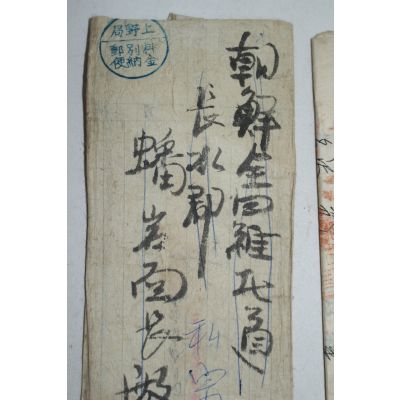 上野局
料金
別納
郵便
朝鮮全羅北道
長水郡
蟠岩面長殿